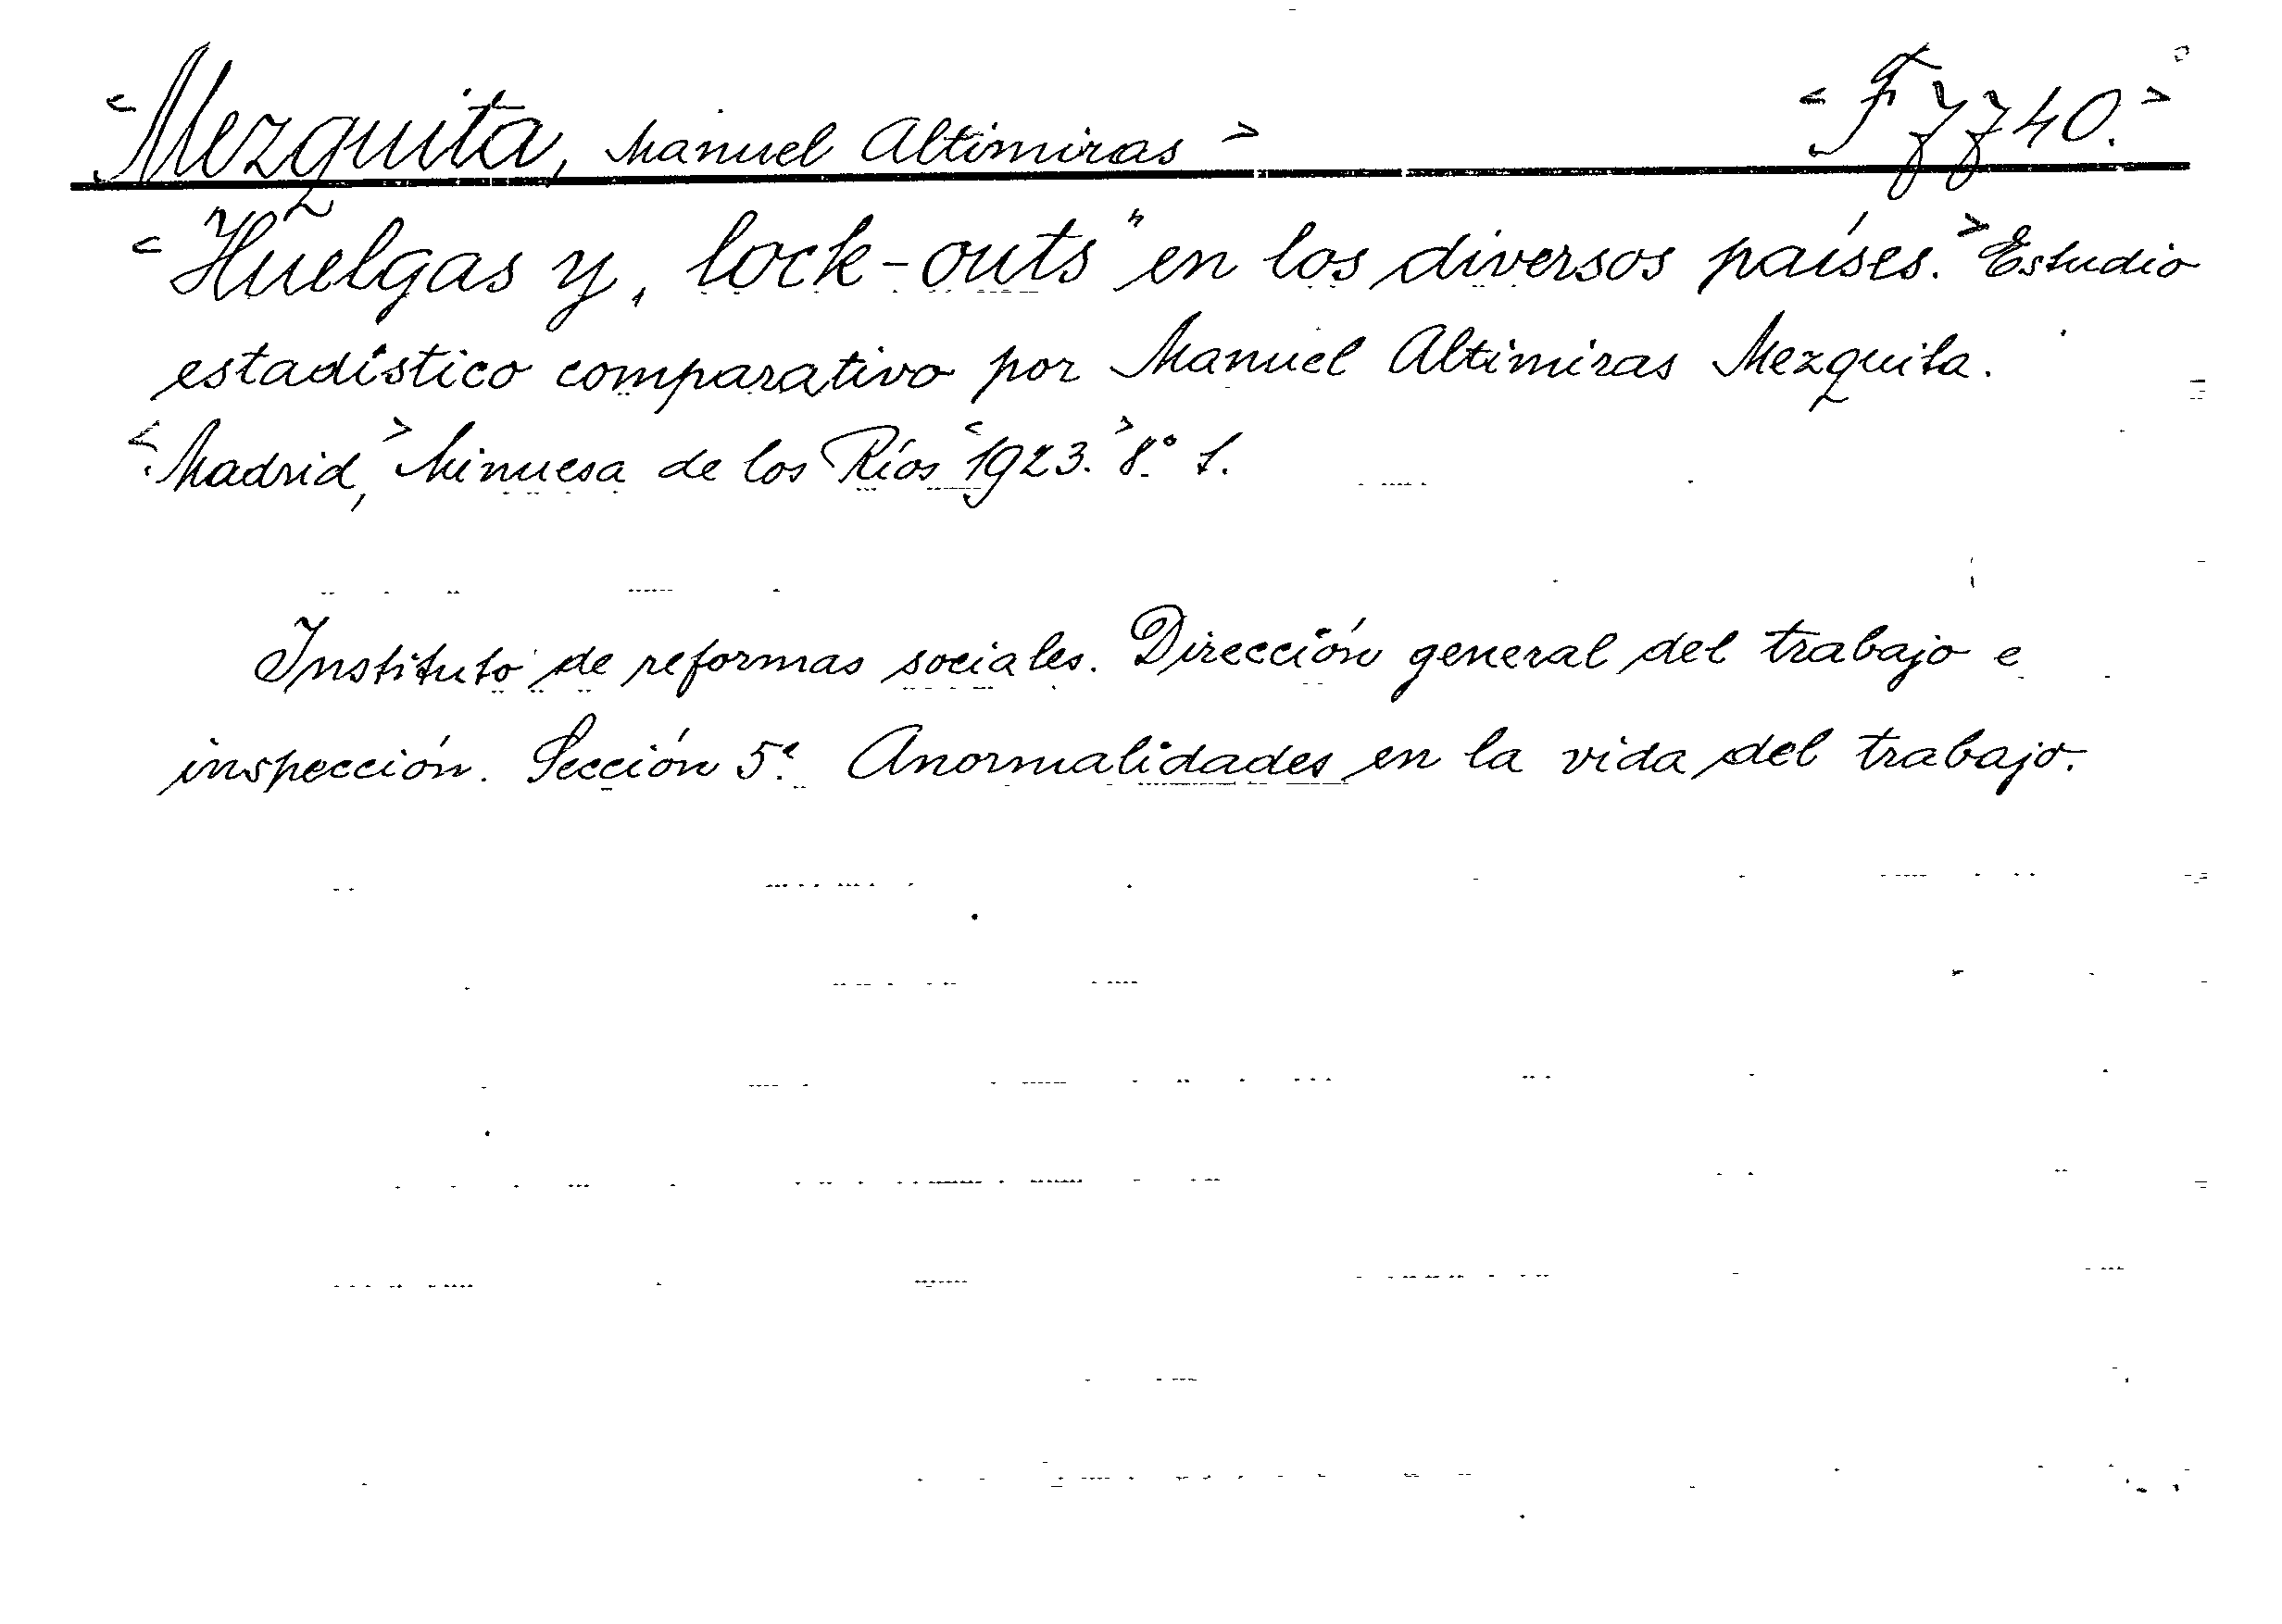 <Mezquita, Manuel Altimiras> <F 7740.>
<Huelgas y „lock-outs” en los diversos países.> Estudio
estadístico comparativo por Manuel Altimiras Mezquita.
<Madrid,> Minuesa de los Ríos <1923.> 8.° 1.
Instituto de reformas sociales. Dirección general del trabajo e
inspección. Sección 5.ª Anormalidades en la vida del trabajo.